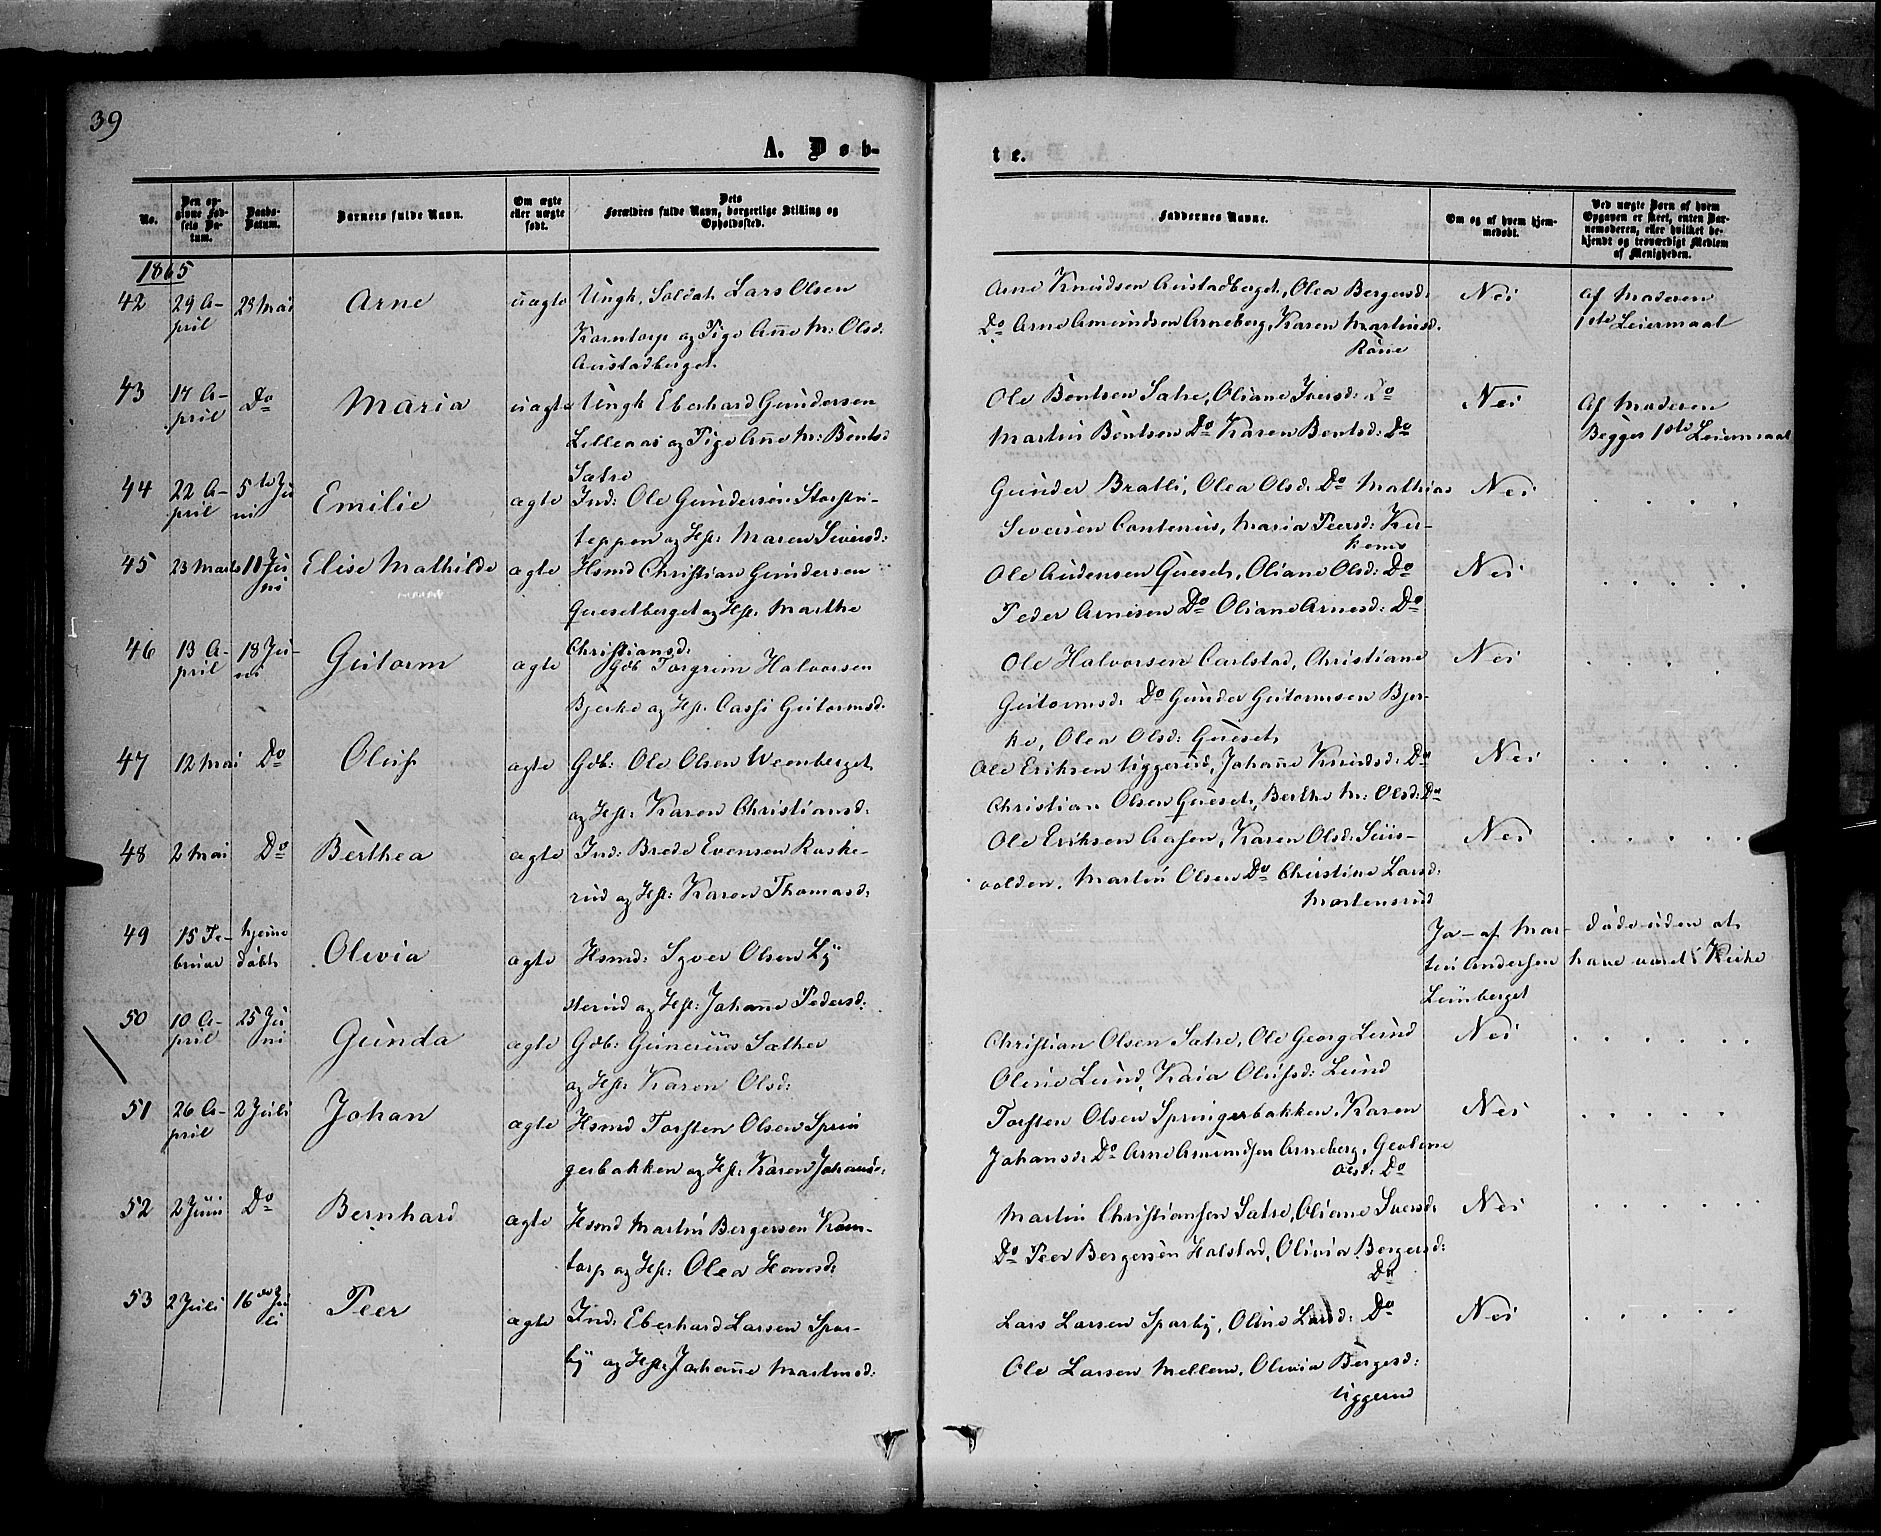 39
A. Døb-
te.
No.
Den op-
givne Fød-
sels Da-
tum.
Daabs-
Datum.
Barnets fulde Navn.
Om ægte
eller uægte
født.
Dets
Forældres fulde Navn, borgerlige Stilling og
Opholdssted.
Faddernes Navne.
Om og af hvem hjem-
medøbt.
Ved uægte Børn af hvem
Opgaven er skeet, enten Bar-
nemoderen, eller hvilket be-
kjendt og troværdigt Medlem
af Menigheden.
1865
42 29 A-
pril 28 Mai Arne uægte Ungk. Soldat Lars Olsen
Korntorp og Pige Anne M: Olsd:
Austadberget
Arne Knudsen Austadberget, Olea Bergersd:
Do Arne Amundsen Arneberg, Karen Martinsd.
Nei
af Moderen
1ste Leiermaal
43 17 A-
pril Do Maria uægte Ungk Eberhard Gundersen
Lilleaas og Pige Anne M: Bentsd
Sætre
Ole Bentsen Sætre, Oliane Iversd: Do
Martin Bentsen Do Karen Bentsd: Do
Nei
Af Moderen
Begges 1ste Leiermaal
44 22 A-
pril 5te Ju
ni Emilie ægte Ind: Ole Gundersen Storstu-
teppen og Hst: Maren Siversd:
Gunder Bratli, Olea Olsd: Do Mathias
Siversen Contenius, Maria Peersd: Ker-
Nei
45 23 Marts 11 Ju
ni Elise Mathilde ægte Hsmd Christian Gundersen
Guesetberget og Hst: Marthe
Christiansd:
Ole Audensen Gueset, Oliane Olsd: Do
Peder Arnesen Do Oliane Arnesd: Do
Nei
46 13 A-
pril 18 Ju-
ni Gutorm ægte Gdb Torgrim Halvorsen
Bjerke og Hst. Cassi Gutormsd.
Ole Halvorsen Carlstad, Christiane
Gutormsd: Do Gunder Gutormsen Bjer-
ke, Olea Olsd: Gueset
Nei
47 12 Mai Do Oluf ægte Gdb: Ole Olsen Weenberget
og Hst: Karen Christiansd:
Ole Eriksen Uggerud, Johanne Knudsd: Do
Christian Olsen Gueset, Berthe M: Olsd: Do
Nei
48 2 Mai Do Berthea ægte Ind: Brede Evensen Raske-
rud og Hst: Karen Thomasd:
Ole Eriksen Aasen, Karen Olsd: Suus-
volden, Martin Olsen Do Christine Larsd:
Martensrud
Nei
49 15 Fe-
bruar hjemme
døbt Olivia ægte Hsmd: Syver Olsen Ly
sterud og Hst: Johanne Pedersd:
Ja - af Mar-
tin Andersen
Lunberget
døde uden at
have været i Kirke
50 10 A-
pril 25 Ju
ni Gunda ægte Gdb: Gunerius Sæther
og Hst: Karen Olsd:
Christian Olsen Sætre, Ole Georg Lund
Oline Lund, Kaia Olufsd: Lund
Nei
51 26 A-
pril 2 Juli Johan ægte Hsmd Torsten Olsen Sprin
gerbakken og Hst: Karen Johansd:
Torsten Olsen Springerbakken, Karen
Johansd: Do Arne Amundsen Arneberg, Geoline
Olsd: Do
Nei
52 2 Juni Do Bernhard ægte Hsmd Martin Bergersen Korn-
torp og Hst: Olea Hansd:
Martin Christiansen Sætre, Oliane Iversd:
Do Peer Bergersen Halstad, Olivia Bergersd:
Do
Nei
53 2 Juli 16de Ju
li Peer ægte Ind: Eberhard Larsen Spar-
by og Hst: Johanne Martinsd:
Lars Larsen Sparby, Oline Larsd: Do
Ole Larsen Mellem, Olivia Bergersd:
Uggerud
Nei